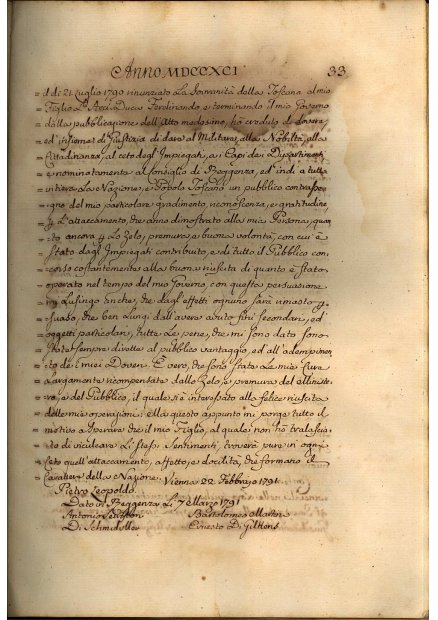 Anno MDCCXCI 33
= d di 21 Luglio 1790 rinunziato la Sovranità della Toscana al mio
= Figlio L'Arci Duca Ferdinando, e terminando il mio Governo
= dalla pubblicazione dell'Atto medesimo, ho creduto di dovere
= ed insieme di Giustizia di dare al Militare, alla Nobiltà, alla
= Cittadinanza, al ceto degl'Impiegati, a i Capi dei Dipartimenti
= e nominatamente al Consiglio di Reggenza, ed indi a tutta
= intiera la Nazione, e Popolo Toscano un pubblico contrasse-
= gno del mio particolare gradimento, riconoscenza, e gratitudine
= p L'attaccamento, che anno dimostrato alla mia Persona, quan-
= to ancora p lo Zelo, premura, e buona volontà, con cui è
= stato dagl'Impiegati contribuito, e di tutto il Pubblico con-
= corso costantemente alla buona riuscita di quanto è stato
= operato nel tempo del mio Governo, con questa persuasione
= mi lusingo anche, che dagl'effetti ognuno sarà rimasto p-
= suaso, che ben lungi dall'avere avuto fini secondari, ed
= oggetti particolari, tutte le pene, che mi sono dato sono
= state sempre dirette al pubblico vantaggio, ed all'adempimen-
= to de i miei Doveri. È vero, che sono state le mie Cure
= largamente ricompensate dallo Zelo, e premura del Ministe-
= ro, e del Pubblico, il quale si è interessato alla felice riuscita
= delle mie operazioni; e da questo appunto mi porge tutto il
= motivo a sperare che il mio Figlio, al quale non ho tralascia-
= to di inculcare li stessi Sentimenti, troverà pure in ogni
= ceto quell'attaccamento, affetto, e docilità, che formano il
Carattere della Nazione. Vienna 22 Febbrajo 1791
Pietro Leopoldo.
Dato in Reggenza Li 7 Marzo 1791
Antonio Serristori Bartolomeo Martini
D. Schmidveiller Ernesto D. Gilkens